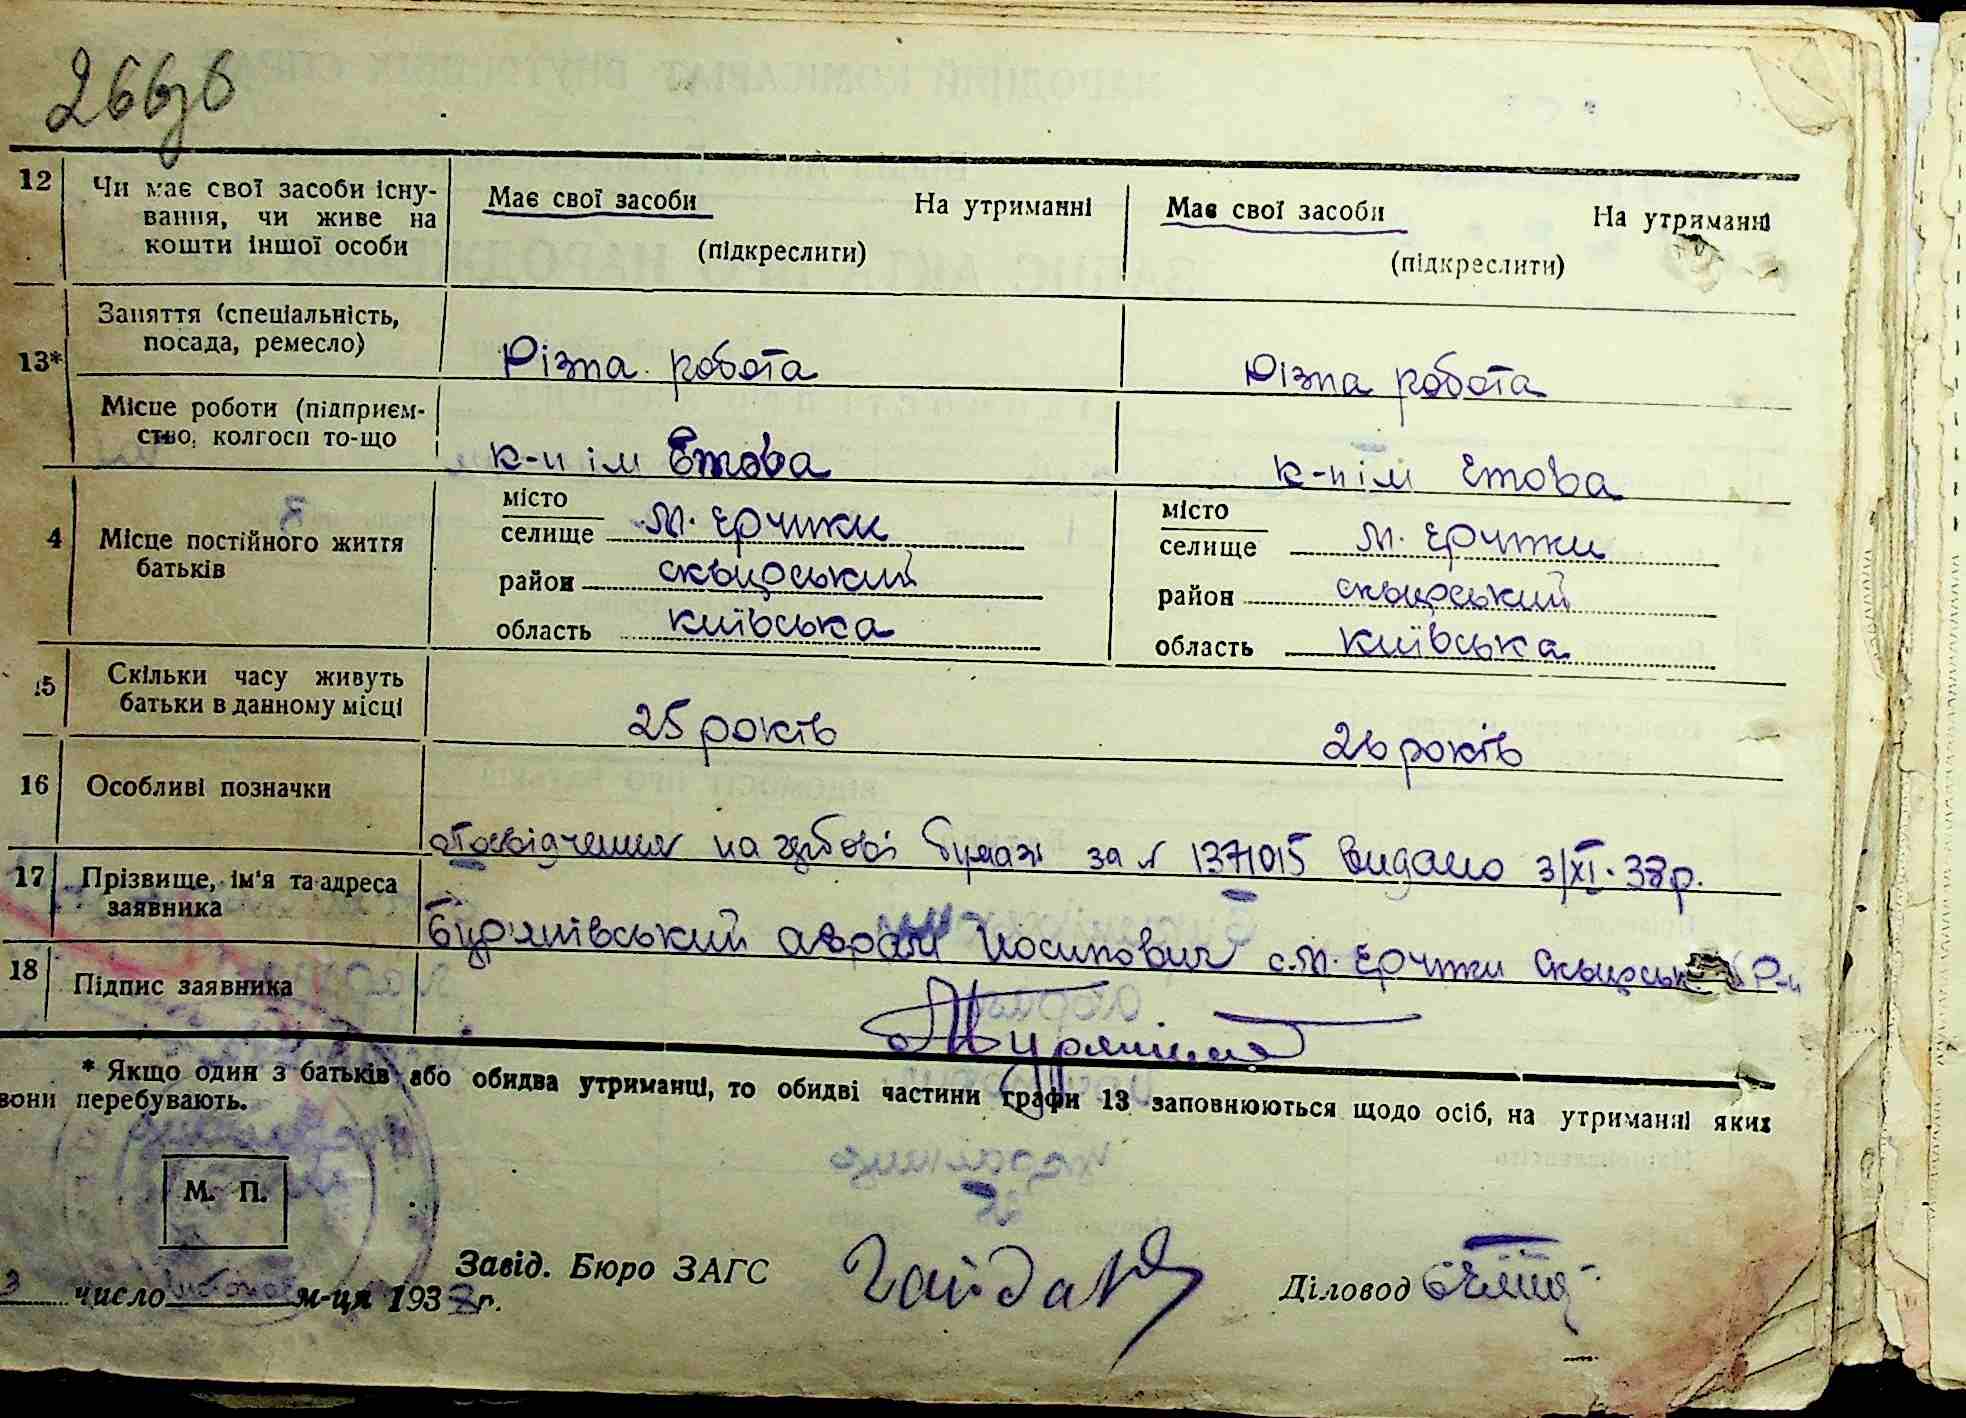 266зв
12 Чи має свої засоби існу-
вання, чи живе на
кошти іншої особи
Має свої засоби На утриманні
(підкреслити)
Має свої засоби На утриманні
(підкреслити)
13* Заняття (спеціальність,
посада, ремесло)
Різна робота
Різна робота
Місце роботи (підприєм-
ство, колгосп то-що
к-п ім
к-п ім
4 Місце постійного життя
батьків
місто
селище м. Ерчики
район сквирський
область київська
місто
селище м. Ерчики
район сквирський
область київська
15 Скільки часу живуть
батьки в данному місці
25 років
26 років
16 Особливі позначки
посвідчення на гербові бумазі за № 1371015 видано 3/XI-38р.
17 Прізвище, ім'я та адреса
заявника
Бурянівський Аврам Иосипович с.м. Ерчики Сквирськ р-н
18 Підпис заявника
* Якщо один з батьків або обидва утриманці, то обидві частини графи 13 заповнюються щодо осіб, на утриманні яких
вони перебувають.
М. П.
3 число листопад м-ця 1938 г.
Завід. Бюро ЗАГС
Діловод